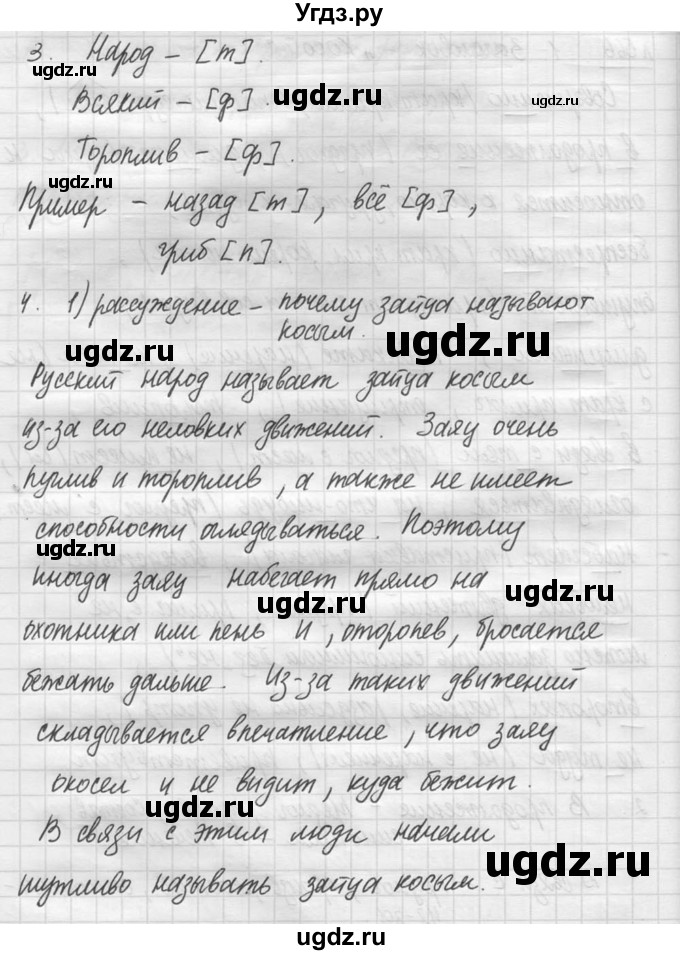 Угдз.ру
3. Народ – [т].
Всякий – [ф].
Тороплив – [ф].
Пример – назад [т], всё [ф],
гриб [п].
4. 1) рассуждение – почему зайца называют
косым.
Русский народ называет зайца косым
из-за его неловких движений. Заяц очень
пуглив и тороплив, а также не имеет
способности оглядываться. Поэтому
иногда заяц набегает прямо на
охотника или пень и, оторопев, бросается
бежать дальше. Из-за таких движений
складывается впечатление, что заяц
окосел и не видит, куда бежит.
В связи с этим люди начали
шутливо называть зайца косым.
ugdz.ru
ugdz.ru
ugdz.ru
ugdz.ru
ugdz.ru
ugdz.ru
ugdz.ru
ugdz.ru
ugdz.ru
ugdz.ru
ugdz.ru
ugdz.ru